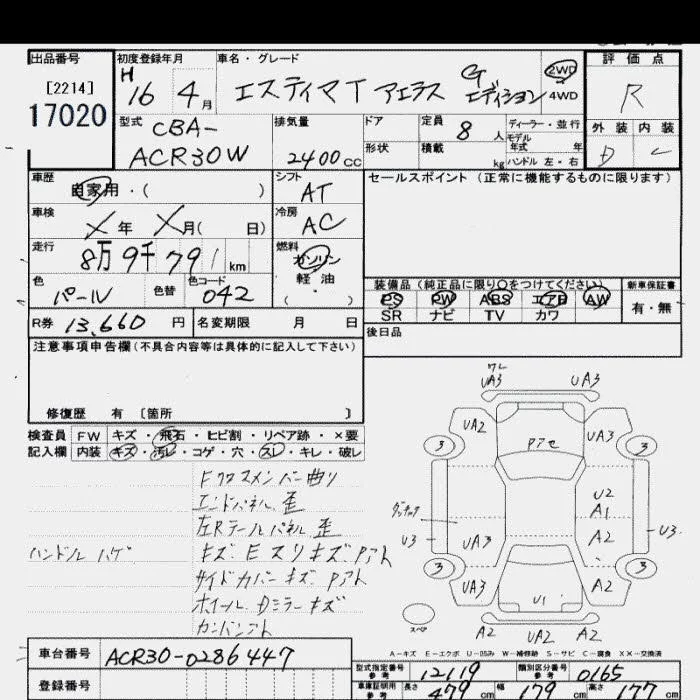 出品番号
[2214]
17020
初度登録年月
H
16 4月
車名・グレード
エスティマT アエラス G エディション
2WD
4WD
評価点
R
外装 内装
D
型式
CBA-
ACR30W
排気量
2400cc
ドア
形状
定員
8人
積載
kg
ディーラー・並行
モデル
年式 年
ハンドル 左・右
車歴
自家用・( )
シフト
AT
セールスポイント (正常に機能するものに限ります)
車検
X年 X月( 日)
冷房
AC
走行
8万9千791km
燃料
ガソリン
軽・油
( ・ )
色
パール
色替
色コード
042
装備品(純正品に限り○をつけてください)
PS PW ABS エアB AW
SR ナビ TV カワ
新車保証書
有・無
R券 13,660円
名変期限 月 日
後日品
注意事項申告欄(不具合内容等は具体的に記入して下さい)
修復歴 有 [箇所 ]
検査員 FW キズ・飛石・ヒビ割・リペア跡・×要
記入欄 内装 キズ・汚レ・コゲ・穴・スレ・キレ・破レ
Fクロスメンバー曲り
エンドパネル歪
左Rテールパネル歪
ハンドル ハゲ
キズ・Eスリキズ・Pアト
サイドカバーキズ・Pアト
ホイール・Dミラーキズ
カンバンアト
ワレ
UA3 UA3
UA2 UA3
3 Pアセ 3
U2
A1
U3 UA3 A2 U3
3 3
UA3 U1 A2
スペア A2 A2
A-キズ E-エクボ U-凹み W-補修跡 S-サビ C-腐食 XX-交換済
車台番号 ACR30-0286447
登録番号
型式指定番号
参考
12119
類別区分番号
参考
0165
車庫証明用
参考
長さ 479cm 幅 179cm 高さ 177cm